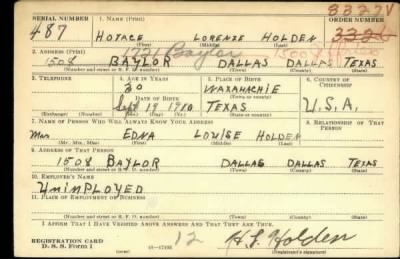 SERIAL NUMBER 1. NAME (Print) ORDER NUMBER
487 HORACE LORENZE HOLDEN 3326
(First) (Middle) (Last)
2. ADDRESS (Print) 1721 Baylor
1508 BAYLOR DALLAS DALLAS TEXAS
(Number and street or R. F. D. number) (Town) (County) (State)
3. TELEPHONE 4. AGE IN YEARS 5. PLACE OF BIRTH 6. COUNTRY OF CITIZENSHIP
30 WAXAHACHIE
DATE OF BIRTH (Town or county)
Sept 19 1910 TEXAS U.S.A.
(Exchange) (Number) (Mo.) (Day) (Yr.) (State or country)
7. NAME OF PERSON WHO WILL ALWAYS KNOW YOUR ADDRESS 8. RELATIONSHIP OF THAT PERSON
Mrs EDNA LOUISE HOLDEN
(Mr., Mrs., Miss) (First) (Middle) (Last)
9. ADDRESS OF THAT PERSON
1508 BAYLOR DALLAS DALLAS TEXAS
(Number and street or R. F. D. number) (Town) (County) (State)
10. EMPLOYER'S NAME
UNIMPLOYED
11. PLACE OF EMPLOYMENT OR BUSINESS
(Number and street or R. F. D. number) (Town) (County) (State)
I AFFIRM THAT I HAVE VERIFIED ABOVE ANSWERS AND THAT THEY ARE TRUE.
REGISTRATION CARD 12 H. L. Holden
D. S. S. Form 1 (Registrant's signature)